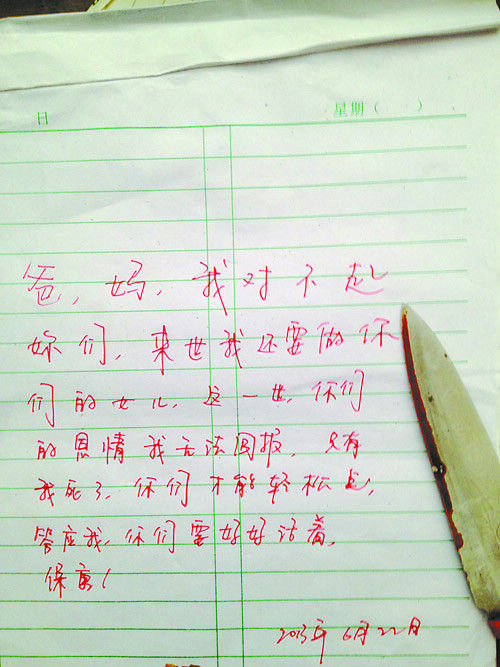 日 星期（ ）
爸，妈，我对不起
你们，来世我还要做你
们的女儿，这一世，你们
的恩情我无法回报，只有
我死了，你们才能轻松点，
答应我，你们要好好活着，
保重！
2013年6月22日